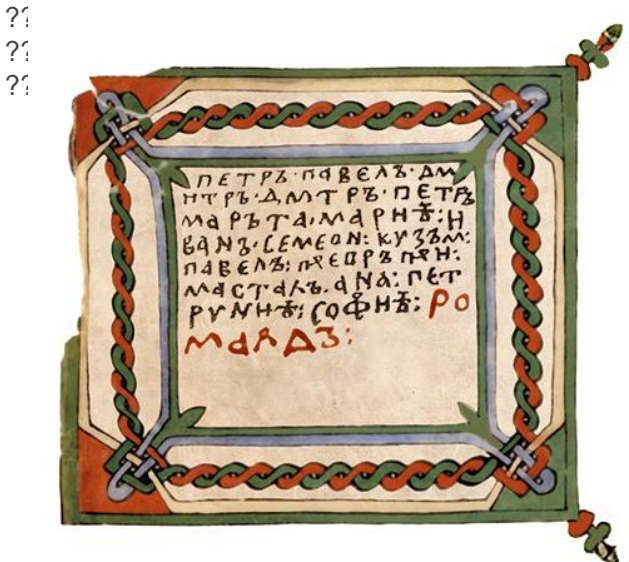 ??
??
??
ПЕТРЪ·ПАВЕЛЪ·ДМ
НТРЪ·ДМТРЪ·ПЕТРЪ
МАРЪТА·МАРНѢ:Н
ВАNЪ·СЕМЕОN:КУЗЪМ:
ПАВЕЛЪ:
МАСТАЛЪ.АNА:ПЕТ
РУМНѢ:СОФНѢ:РО